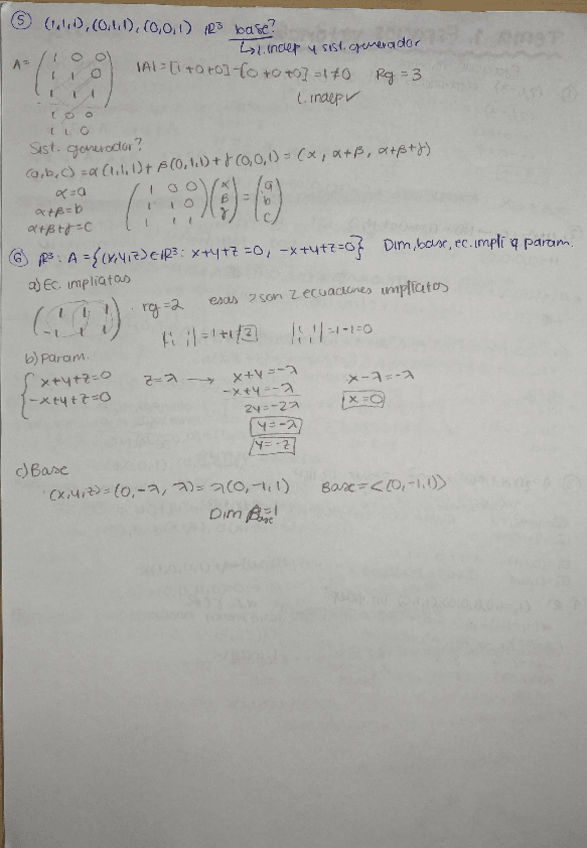 ⑤ (1,1,1), (0,1,1), (0,0,1) ℝ³ base?
↳ l. indep y sist. generador
A = ( 1 0 0
1 1 0
1 1 1 )
1 0 0
1 1 0
|A| = [1+0+0]-[0+0+0] = 1 ≠ 0 Rg = 3
l. indep ✓
Sist. generador?
(a,b,c) = α(1,1,1) + β(0,1,1) + γ(0,0,1) = (α, α+β, α+β+γ)
α = a
α+β = b
α+β+γ = c
( 1 0 0
1 1 0
1 1 1 ) ( α
β
γ ) = ( a
b
c )
⑥ ℝ³: A = {(x,y,z) ∈ ℝ³: x+y+z=0, -x+y+z=0} Dim, base, ec. impli q param.
a) Ec. implícitas
( 1 1 1
-1 1 1 ) rg = 2 esas 2 son 2 ecuaciones implícitas
= 1+1 = 2
= 1-1 = 0
b) Param.
{ x+y+z=0
-x+y+z=0
z = λ →
x+y = -λ
-x+y = -λ
2y = -2λ
y = -λ
y = -z
x-λ = -λ
x = 0
c) Base
(x,y,z) = (0, -λ, λ) = λ(0,-1,1) Base = <(0,-1,1)>
Dim Base = 1